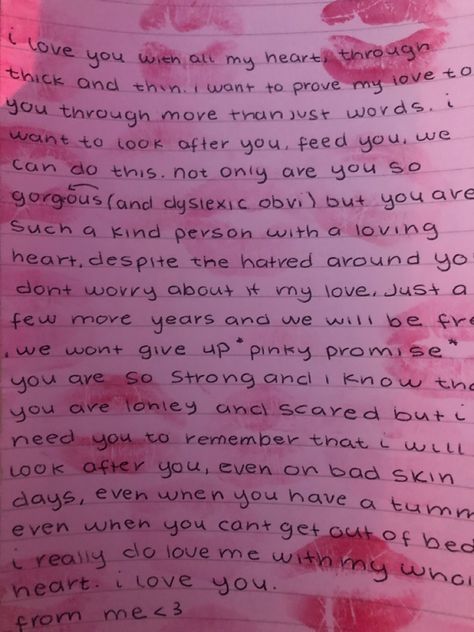 i love you with all my heart, through
thick and thin. i want to prove my love to
you through more than just words. i
want to look after you, feed you, we
can do this. not only are you so
gorgous (and dyslexic obvi) but you are
such a kind person with a loving
heart, despite the hatred around yo
dont worry about it my love, just a
few more years and we will be fre
. we wont give up *pinky promise*
you are so strong and i know tha
you are lonley and scared but i
need you to remember that i will
look after you, even on bad skin
days, even when you have a tumm
even when you cant get out of bed
i really do love me with my whol
heart. i love you.
from me <3